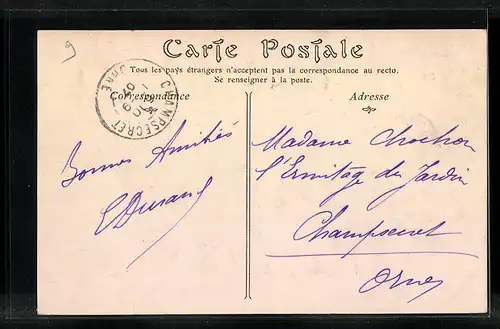 9
Carte Postale
Tous les pays étrangers n'acceptent pas la correspondance au recto.
Se renseigner à la poste.
CHAMPSECRET ORNE
Correspondance
Adresse
Bonnes Amitiés
Durand
Madame Chochon
l'Ermitage du Jardin
Champsecret
Orne